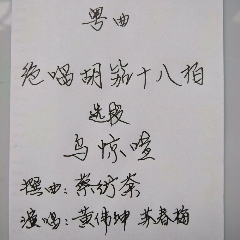 粤曲
绝唱胡笳十八拍
选段
乌惊喧
撰曲：蔡衍棻
演唱：黄伟坤 苏春梅